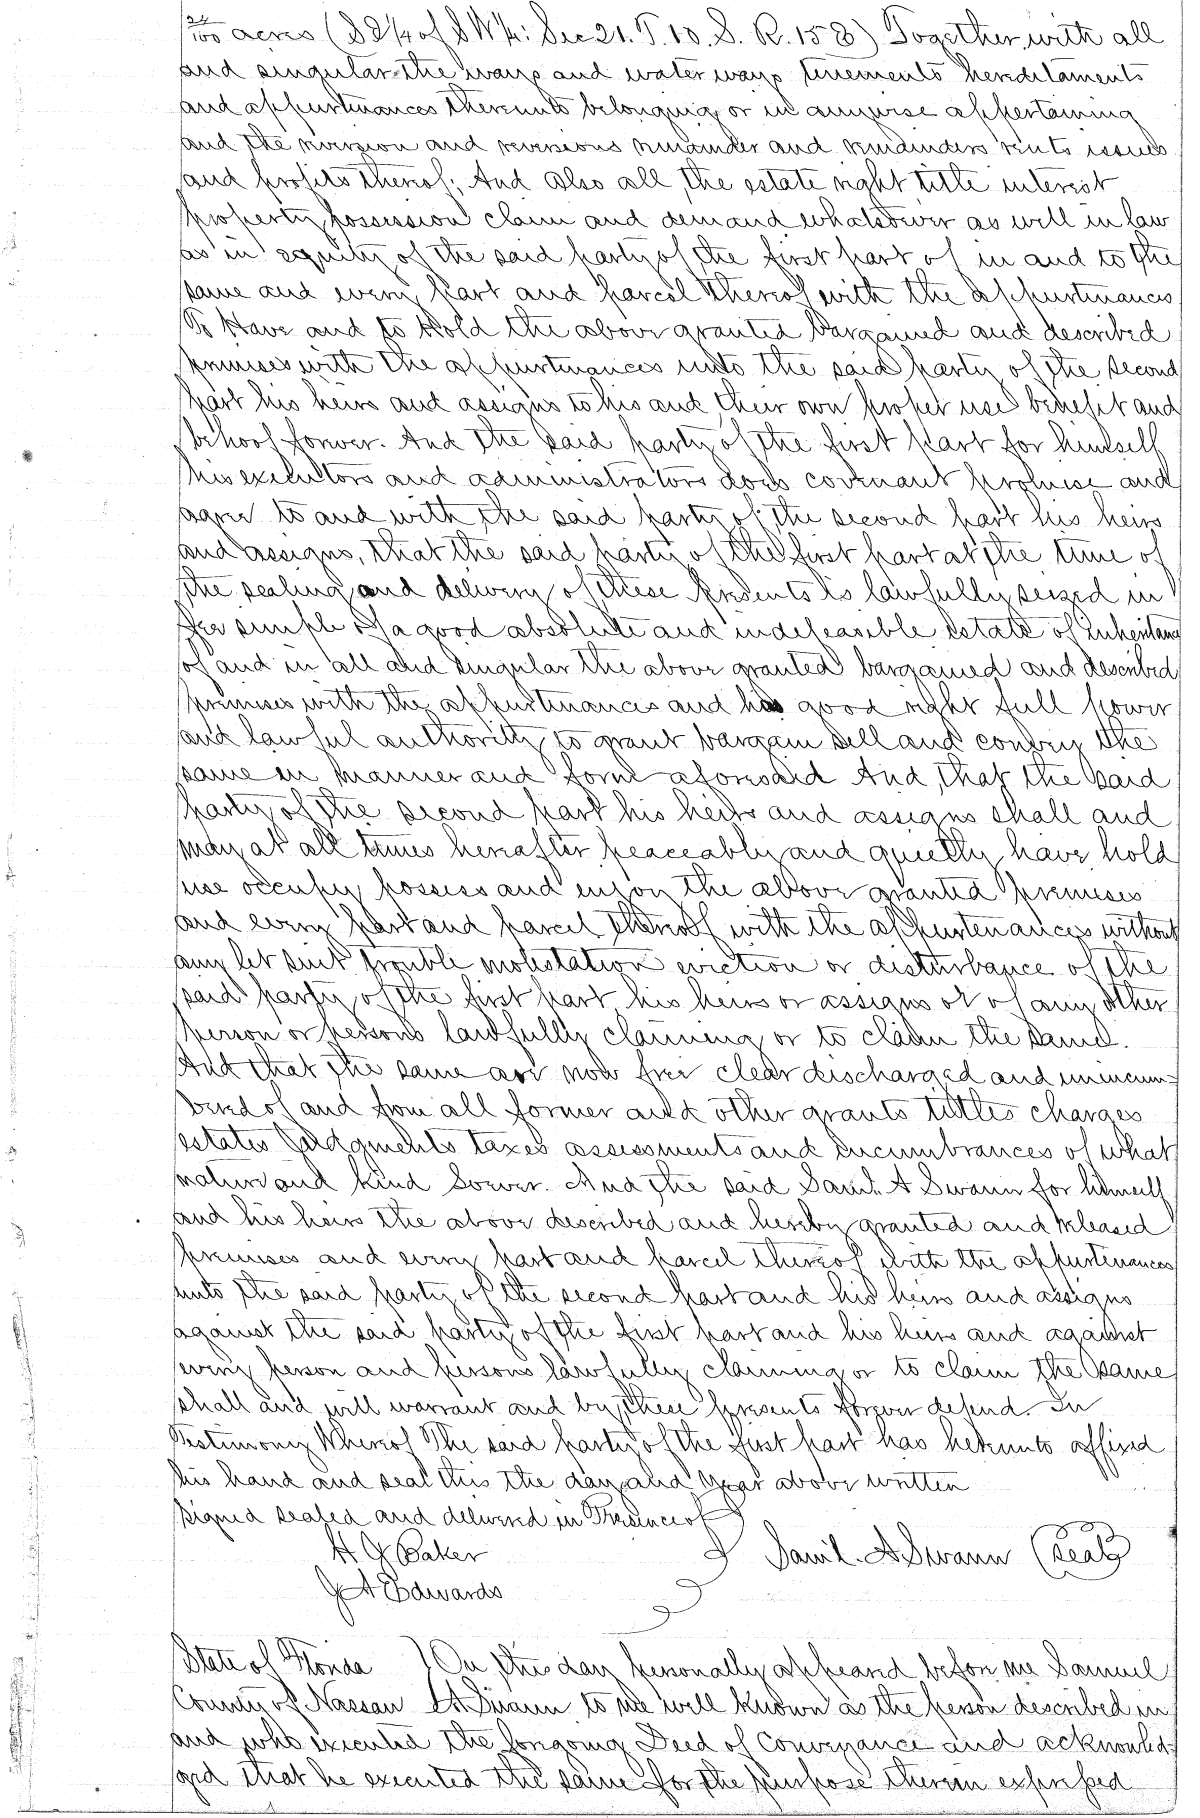 24/100 acres (SE 1/4 of SW 1/4: Sec 21. T. 10. S. R. 15 E) Together with all
and singular the ways and water ways tenements hereditaments
and appurtenances thereunto belonging or in anywise appertaining
and the reversion and reversions remainder and remainders rents issues
and profits thereof; And also all the estate right title interest
property possession claim and demand whatsoever as well in law
as in equity of the said party of the first part of in and to the
same and every part and parcel thereof with the appurtinances
To Have and to Hold the above granted bargained and described
premises with the appurtinances unto the said party of the second
part his heirs and assigns to his and their own proper use benefit and
behoof forever. And the said party of the first part for himself
his executors and administrators does covenant promise and
agree to and with the said party of the second part his heirs
and assigns, that the said party of the first part at the time of
the sealing and delivery of these presents is lawfully seized in
fee simple of a good absolute and indefeasible estate of inheritance
of and in all and singular the above granted bargained and described
premises with the appurtinances and has good right full power
and lawful authority to grant bargain sell and convey the
same in manner and form aforesaid And that the said
party of the second part his heirs and assigns shall and
may at all times hereafter peaceably and quietly have hold
use occupy possess and enjoy the above granted premises
and every part and parcel thereof with the appurtenances without
any let suit trouble molestation eviction or disturbance of the
said party of the first part his heirs or assigns or of any other
person or persons lawfully claiming or to claim the same.
And that the same are now free clear discharged and unincum-
bered of and from all former and other grants tittles charges
estates judgments taxes assessments and encumbrances of what
nature and kind soever. And the said Saml. A Swann for himself
and his heirs the above described and hereby granted and released
premises and every part and parcel thereof with the appurtinances
unto the said party of the second part and his heirs and assigns
against the said party of the first part and his heirs and against
every person and persons lawfully claiming or to claim the same
shall and will warrant and by these presents forever defend. In
Testimony Whereof The said party of the first part has hereunto affixed
his hand and seal this the day and year above written
Signed sealed and delivered in Presence of
H J Baker Saml. A Swann (Seal)
J A Edwards
State of Florida } On this day personally appeared before me Samuel
County of Nassau A Swann to me well known as the person described in
and who executed the foregoing Deed of Conveyance and acknowled-
ged that he executed the same for the purpose therein expressed